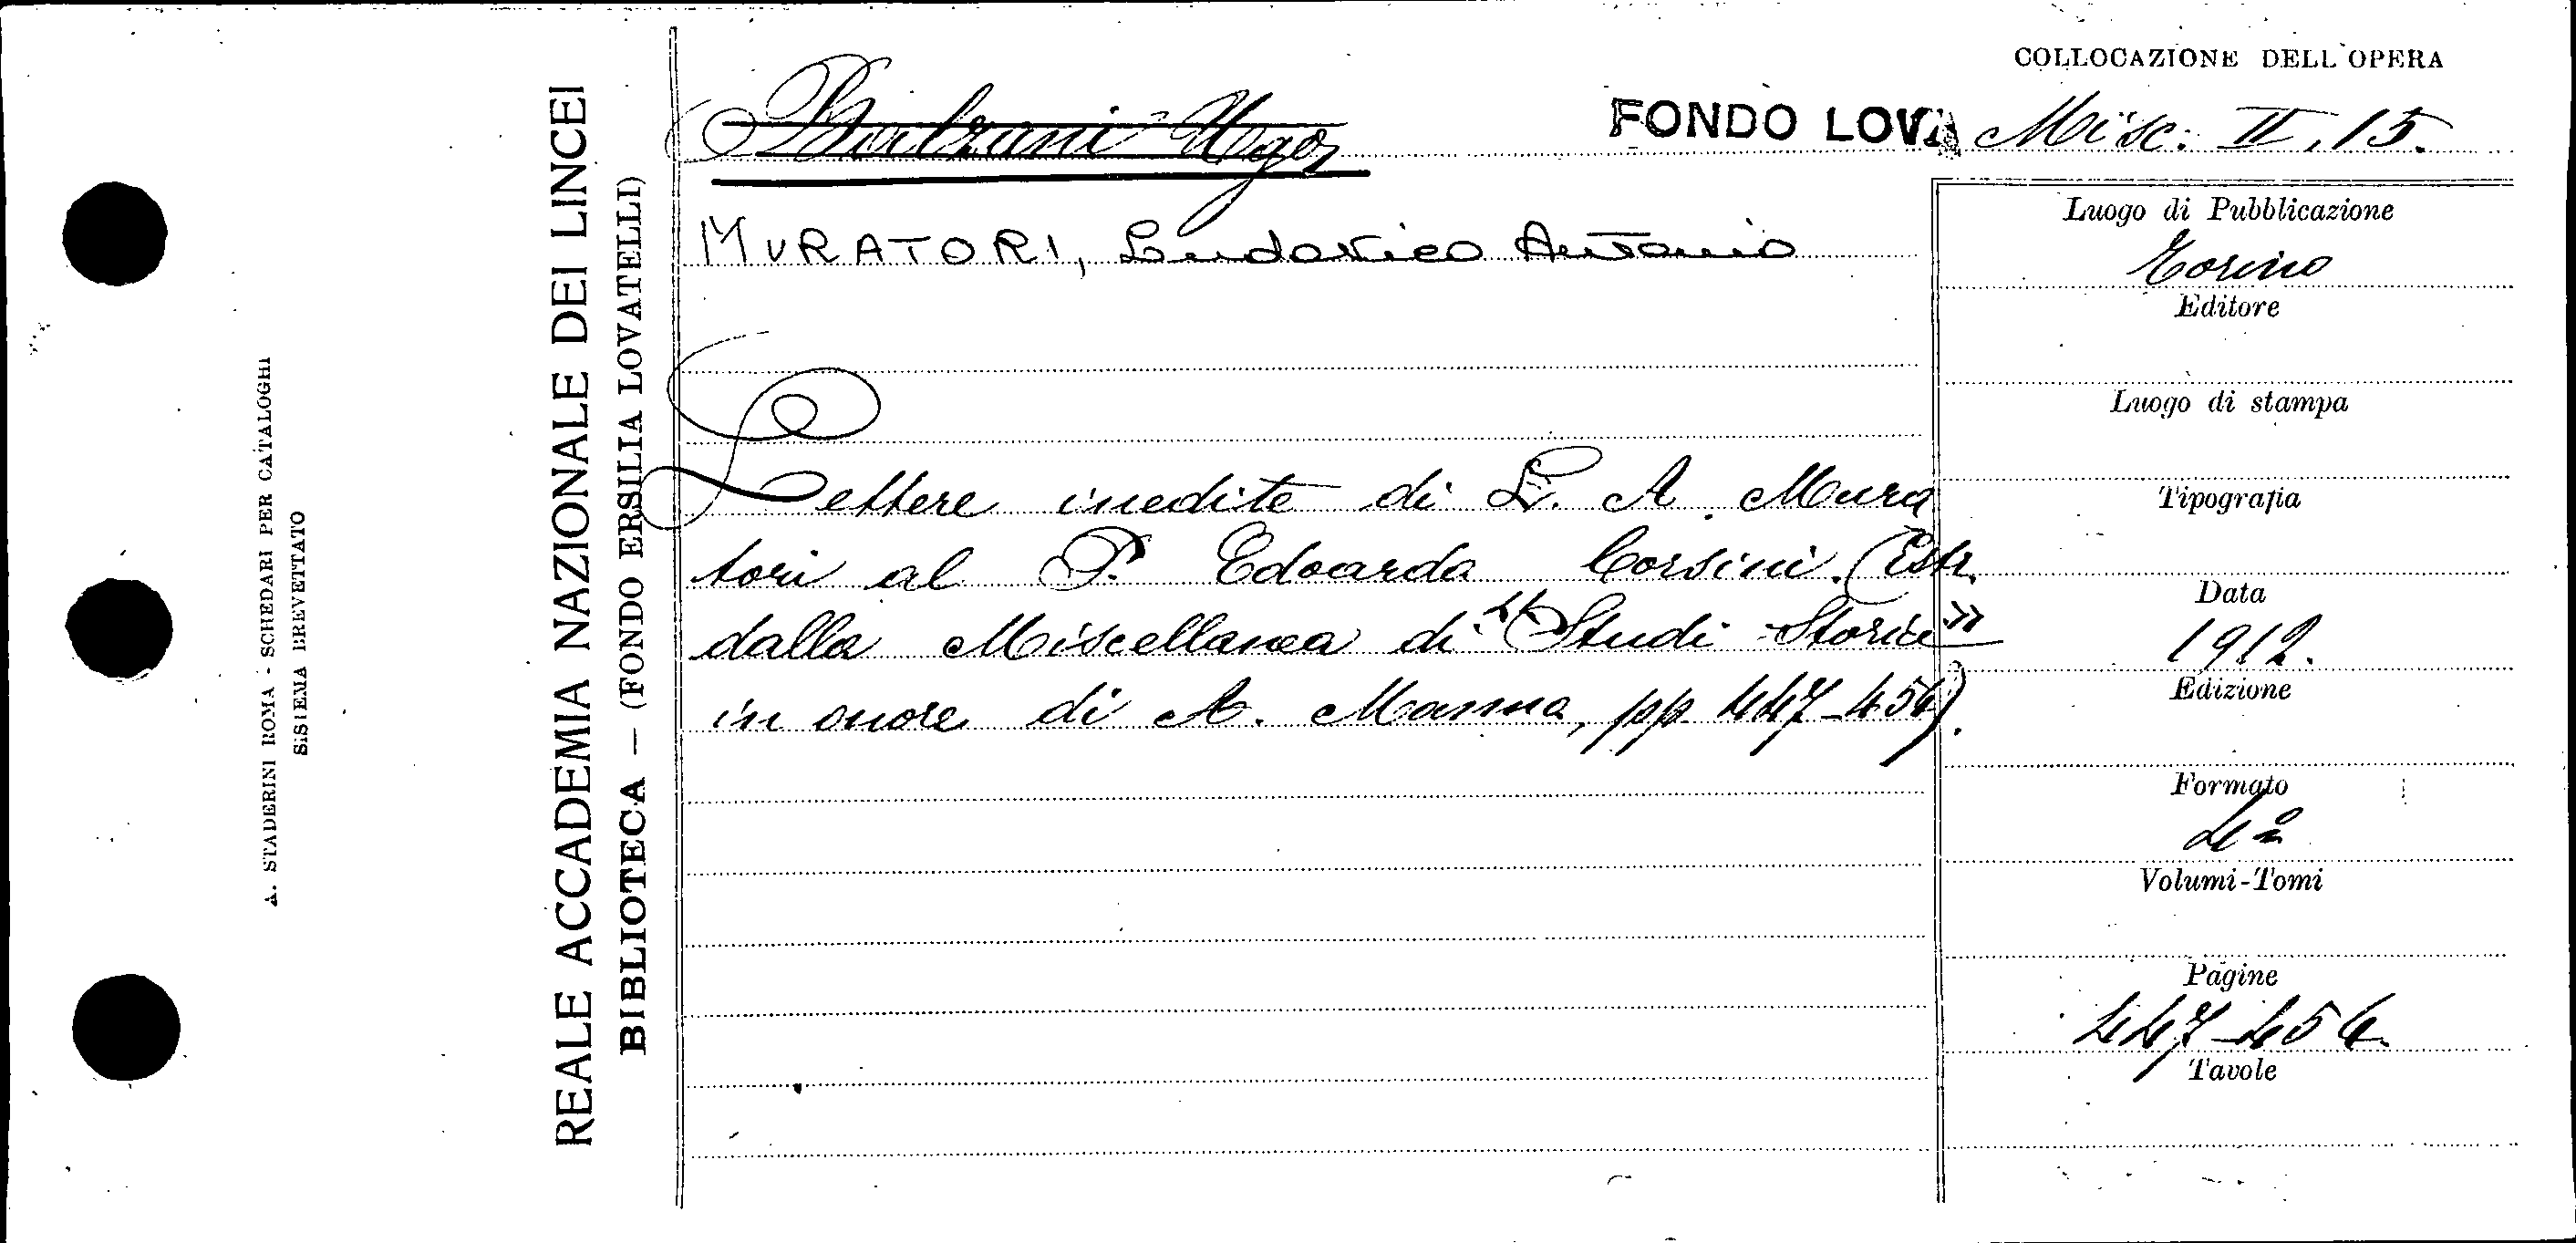 COLLOCAZIONE DELL'OPERA
Balzani Ugo
FONDO LOVA Misc. II. 15.
MURATORI, Ludovico Antonio
Lettere inedite di L. A. Mura
tori al P. Edoardo Corsini. (Estr.
dalla Miscellanea di "Studi Storici"
in onore di A. Manno, pp. 447-454).
Luogo di Pubblicazione
Torino
Editore
Luogo di stampa
Tipografia
Data
1912.
Edizione
Formato
4°
Volumi-Tomi
Pagine
447-454.
Tavole
REALE ACCADEMIA NAZIONALE DEI LINCEI
BIBLIOTECA — (FONDO ERSILIA LOVATELLI)
A. STADERINI ROMA - SCHEDARI PER CATALOGHI
SISTEMA BREVETTATO